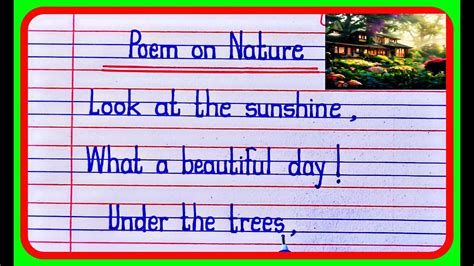 Poem on Nature
Look at the sunshine,
What a beautiful day!
Under the trees,